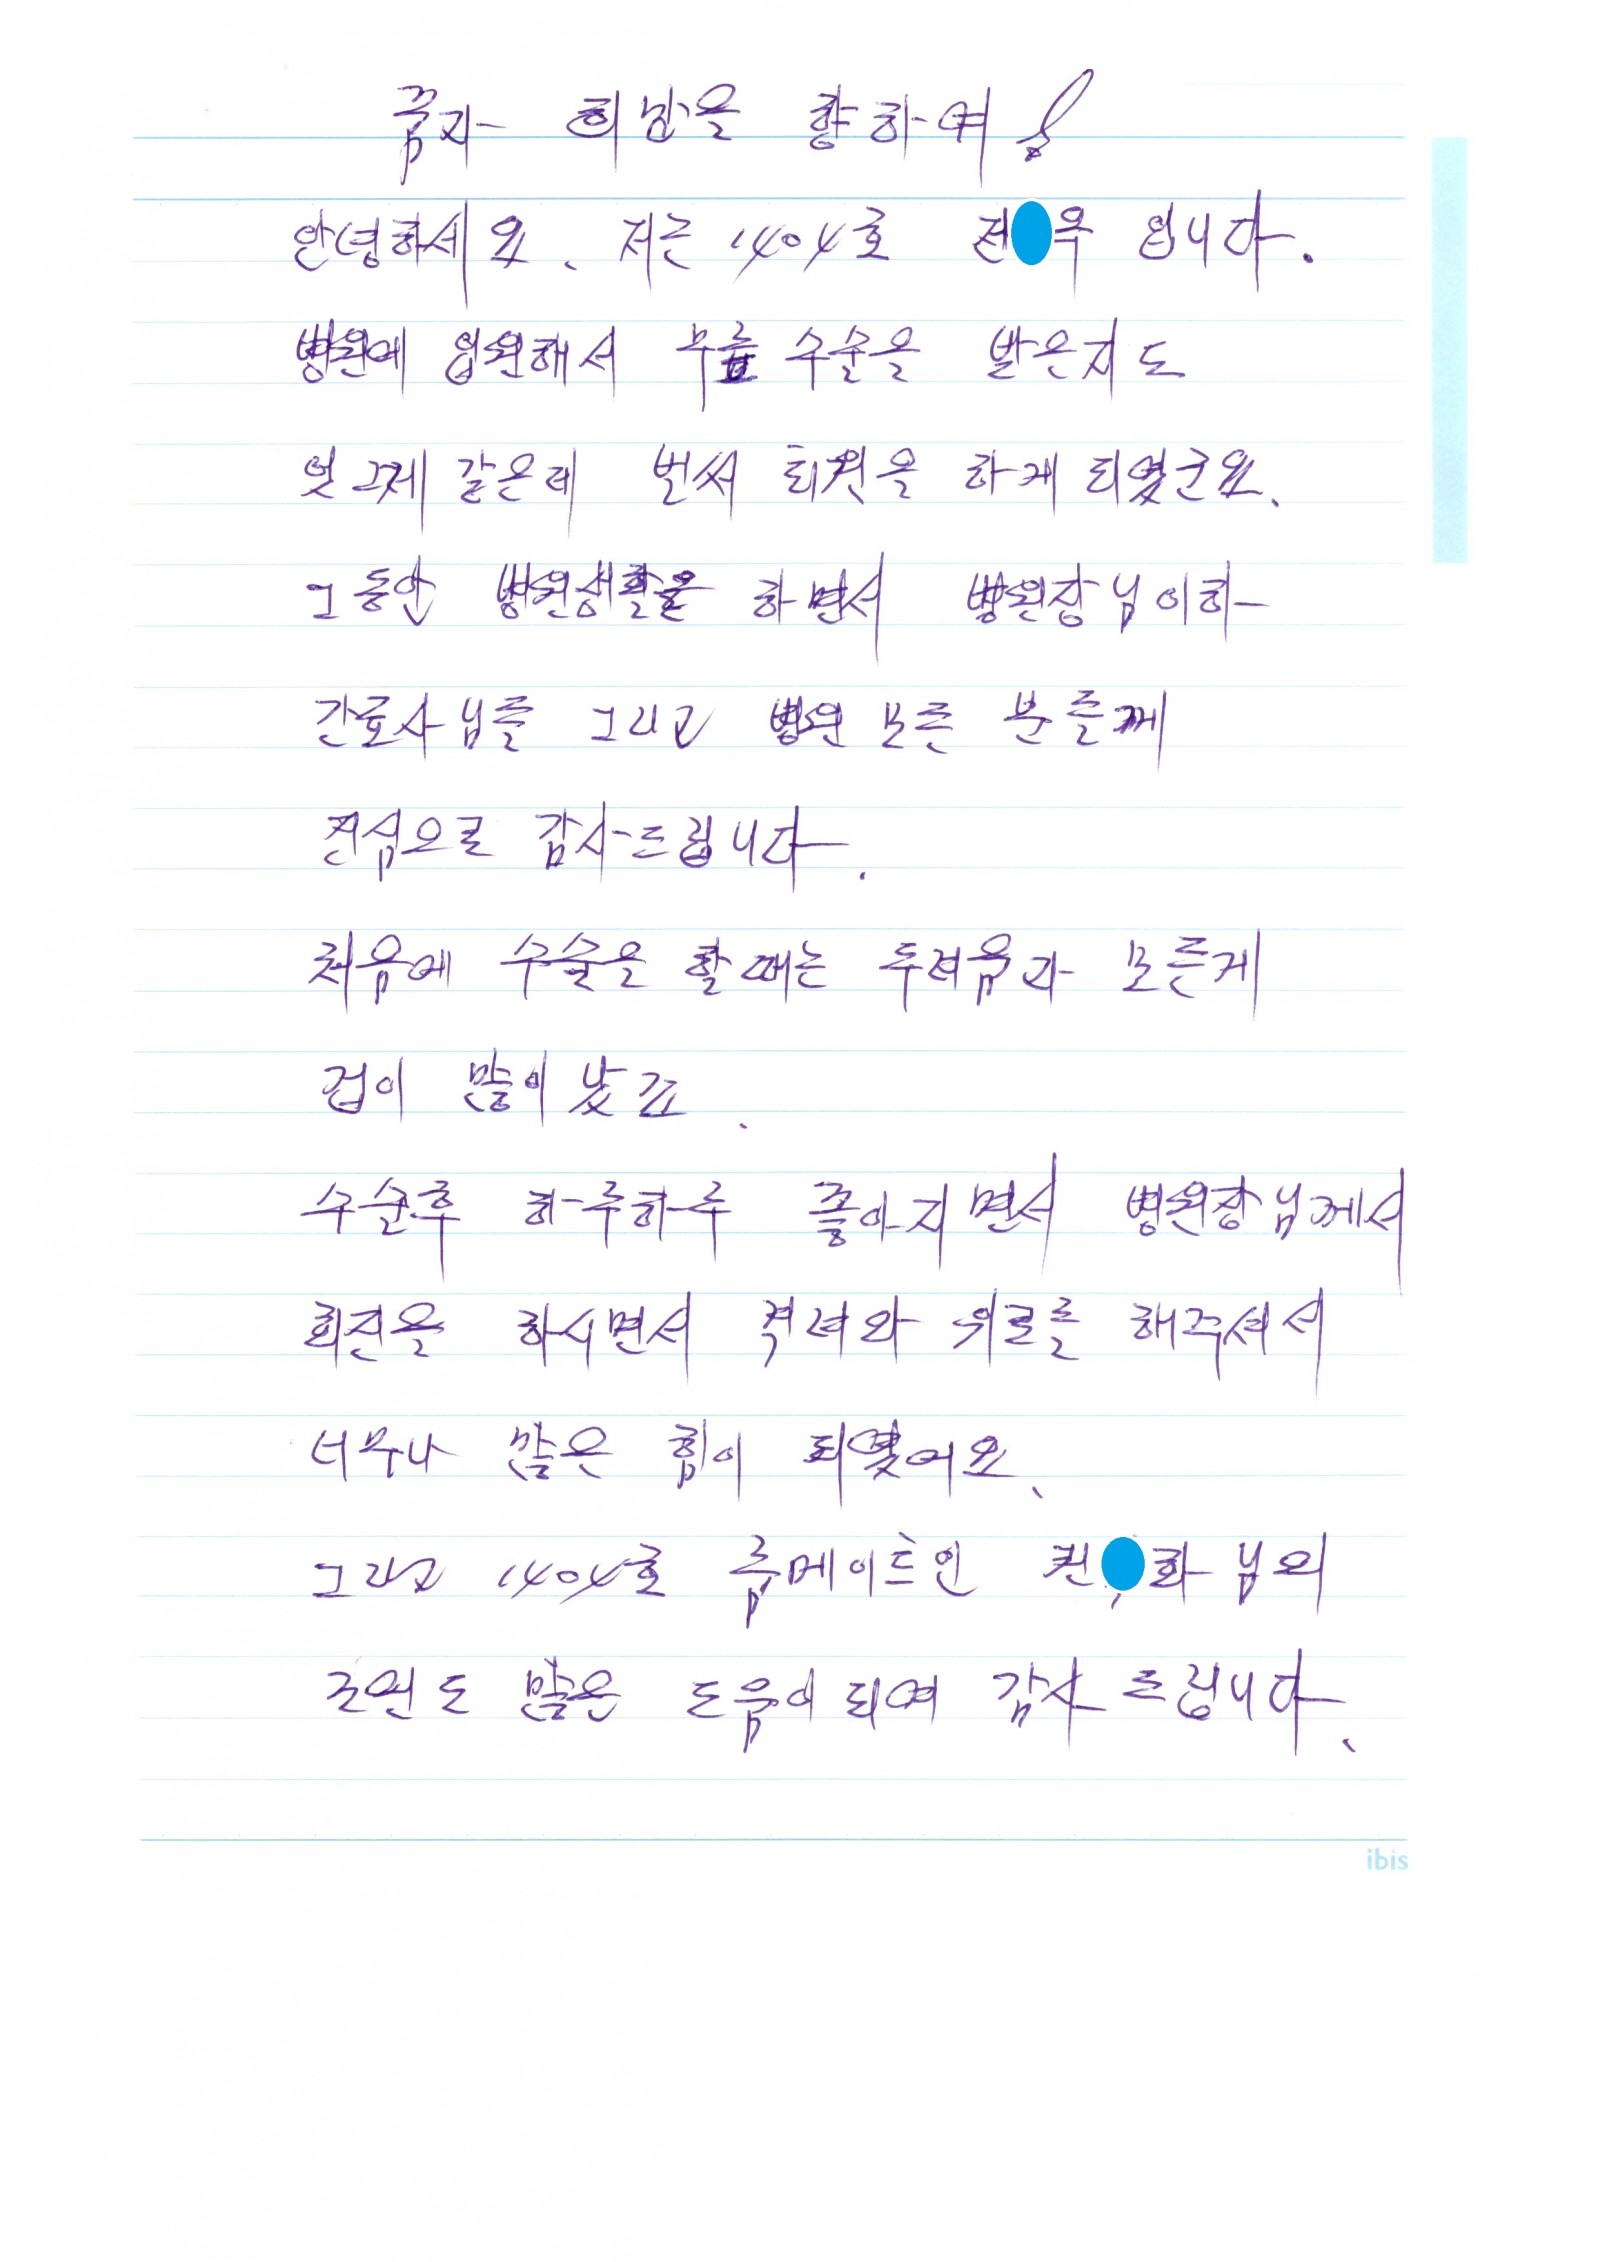 꿈과 희망을 향하여!
안녕하세요. 저는 1404호 전 욱 입니다.
병원에 입원해서 무릎 수술을 받은지도
엇그제 같은데 벌써 퇴원을 하게 되였군요.
그동안 병원생활을 하면서 병원장님이하
간호사님들 그리고 병원 모든 분들께
진심으로 감사드립니다.
처음에 수술을 할때는 두려움과 모든게
겁이 많이 났죠.
수술후 하루하루 좋아지면서 병원장님께서
회진을 하시면서 격려와 위로를 해주셔서
너무나 많은 힘이 되였어요.
그리고 1404호 룸메이트인 화님의
조언도 많은 도움이 되여 감사 드립니다.
ibis